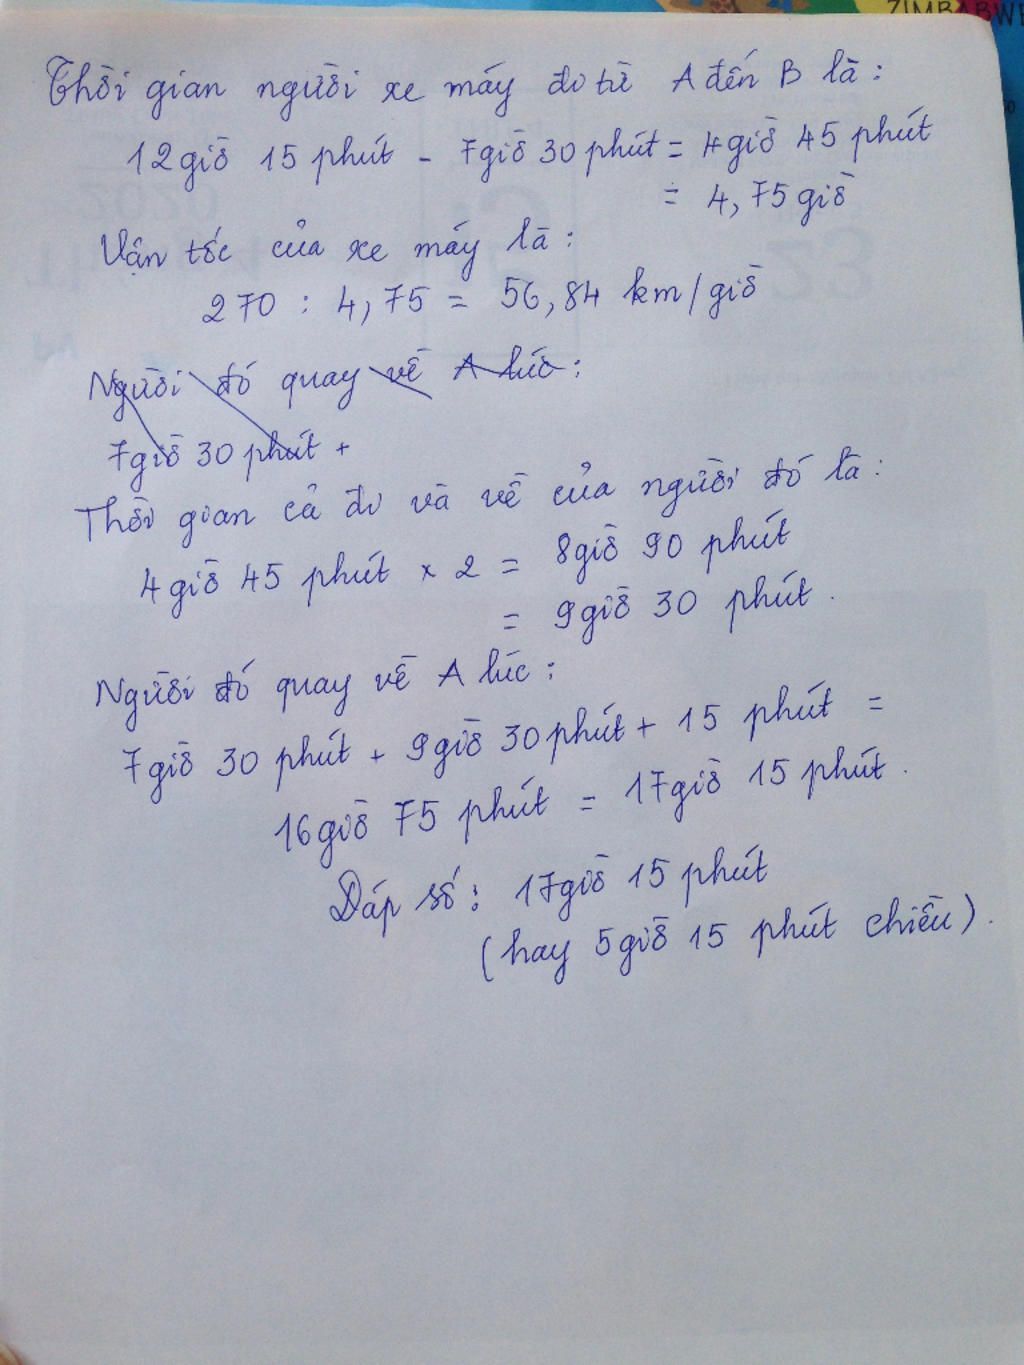 ZIMBABWE
Thời gian người xe máy đi từ A đến B là :
12giờ 15 phút - 7giờ 30 phút = 4giờ 45 phút
= 4,75giờ
Vận tốc của xe máy là :
270 : 4,75 = 56,84 km/giờ
Người đó quay về A lúc :
7giờ 30 phút +
Thời gian cả đi và về của người đó là :
4giờ 45 phút x 2 = 8giờ 90 phút
= 9giờ 30 phút .
Người đó quay về A lúc :
7giờ 30 phút + 9giờ 30 phút + 15 phút =
16giờ 75 phút = 17giờ 15 phút .
Đáp số : 17giờ 15 phút
(hay 5giờ 15 phút chiều) .